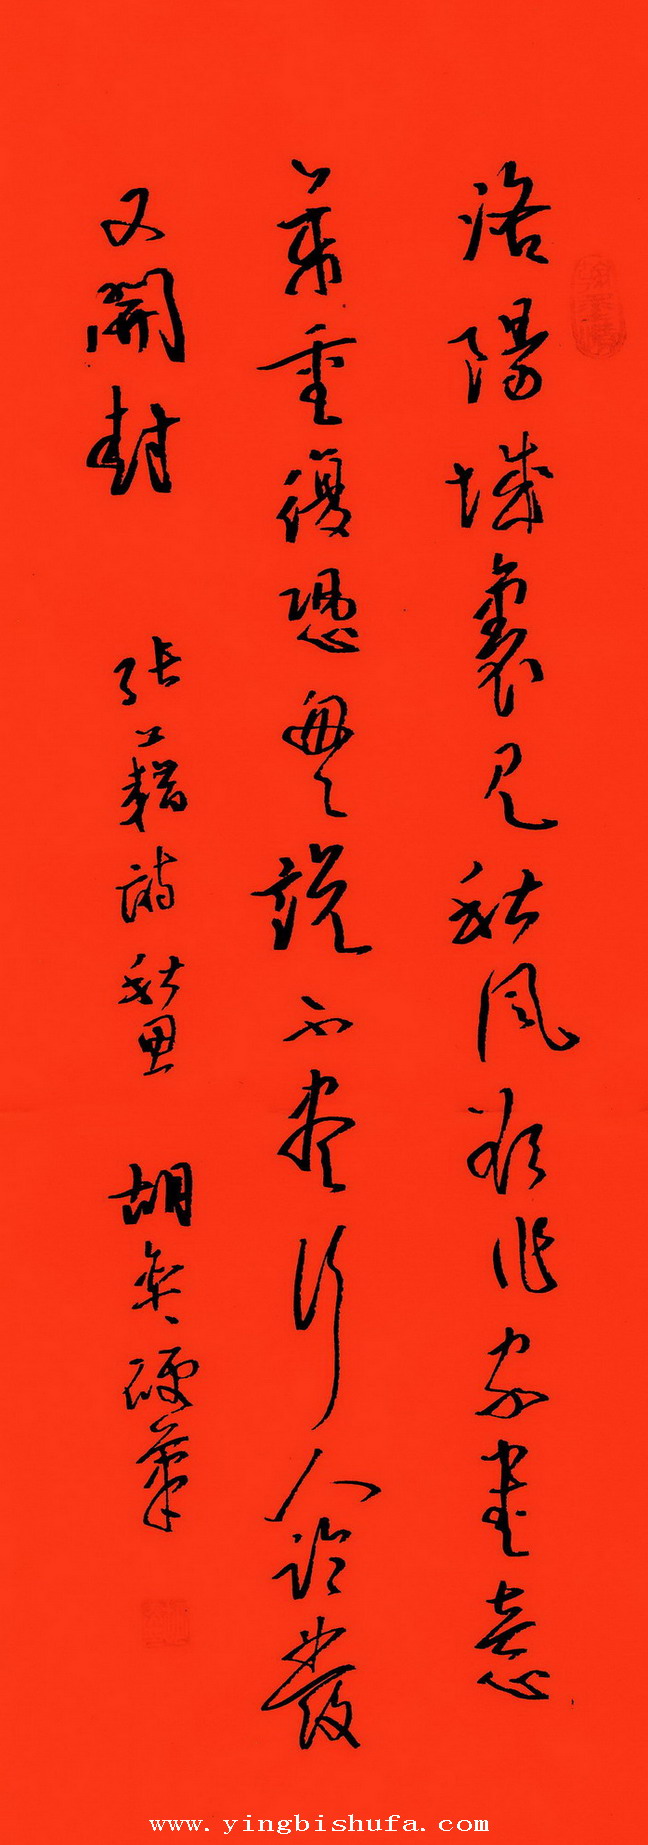 洛陽城裏見秋風欲作家書意
萬重復恐匆匆說不盡行人臨發
又開封 張籍詩秋思 胡 硬筆
www.yingbishufa.com